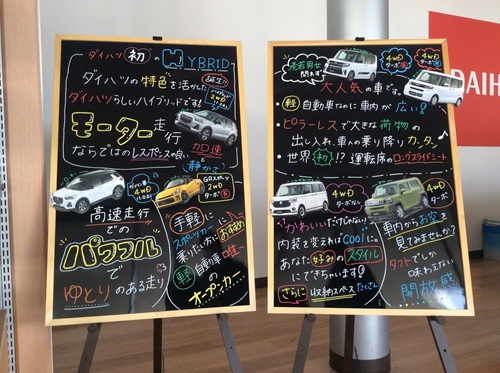 ダイハツ 初
HYBRID
誕生!!
ダイハツの特色を活かした
ダイハツらしいハイブリッドです!
モーター走行
ならではのレスポンスの良い
加速
と
静かさ
4WD
高速走行
での
パワフル
で
ゆとりのある走り
GRスポーツ
2WD
ターボ有
手軽に
スポーツカー
乗りたい方におすすめ
軽自動車
唯一
の
オープンカー
老若男女
問わず
4WD
ターボ有
4WD
ターボ有
大人気の車です。
・軽自動車なのに車内が広い!
・ピラーレスで大きな荷物の
出し入れ、車への乗り降りカンタン
・世界初!? 運転席のロングスライドシート
4WD
ターボなし
4WD
ターボ有
かわいいだけじゃない!
内装を変えればCOOLに
あなた好みのスタイル
にできちゃいます!
さらに収納スペースたくさん
車内からお空を
見てみませんか?
タフトでしか
味わえない
開放感
DAIH